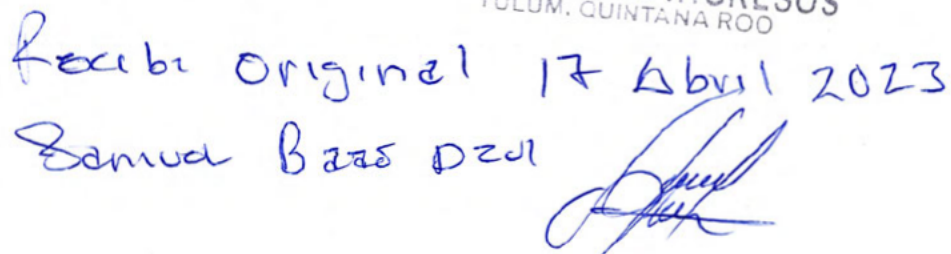 TULUM, QUINTANA ROO
Recibi Original 17 Abril 2023
Samuel Baas Dzul